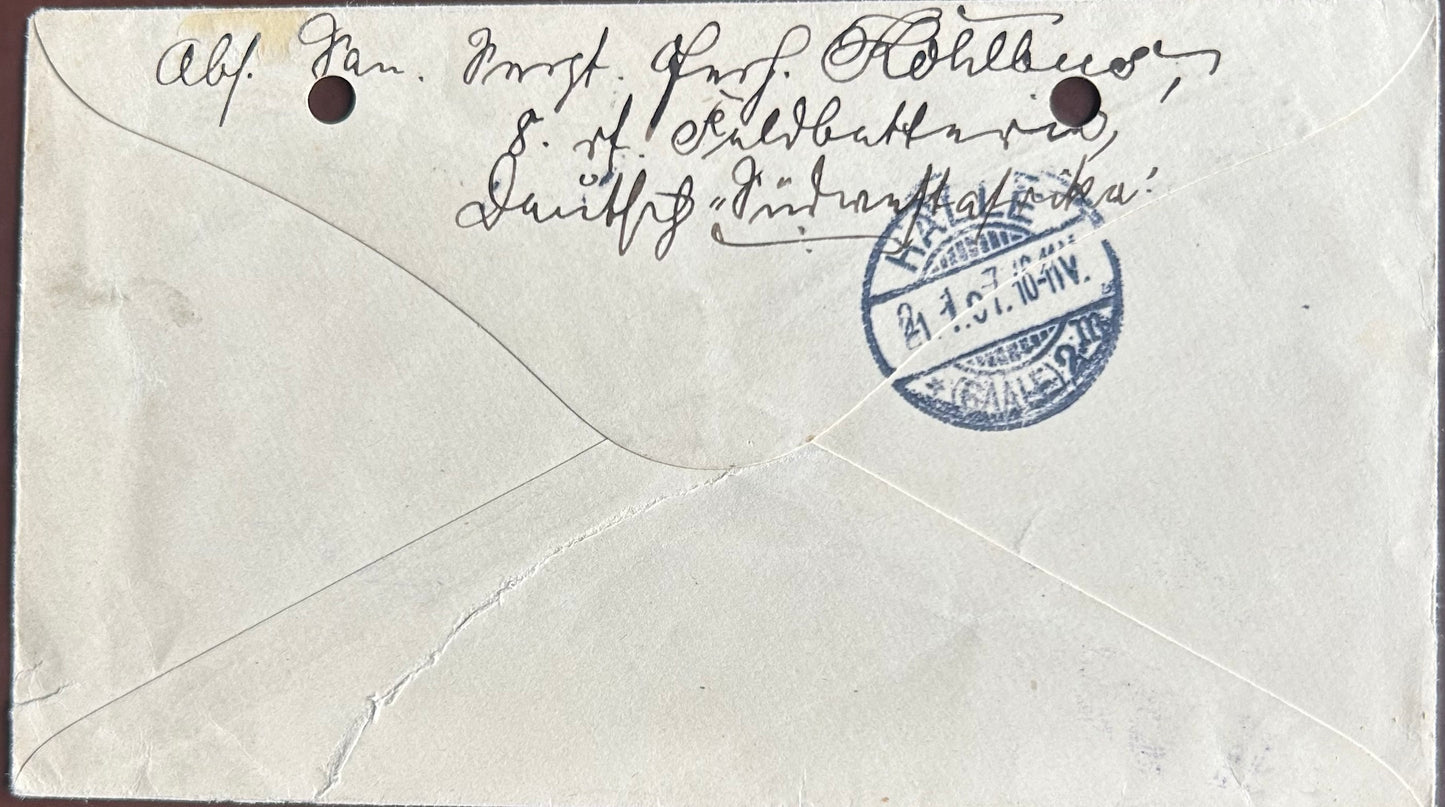 Abs. San. Sergt. Köhlbus,
8. rf. Feldbatterie,
Deutsch-Südwestafrika.
HALLE
21.1.07.10-11V.
* (SAALE) 2m